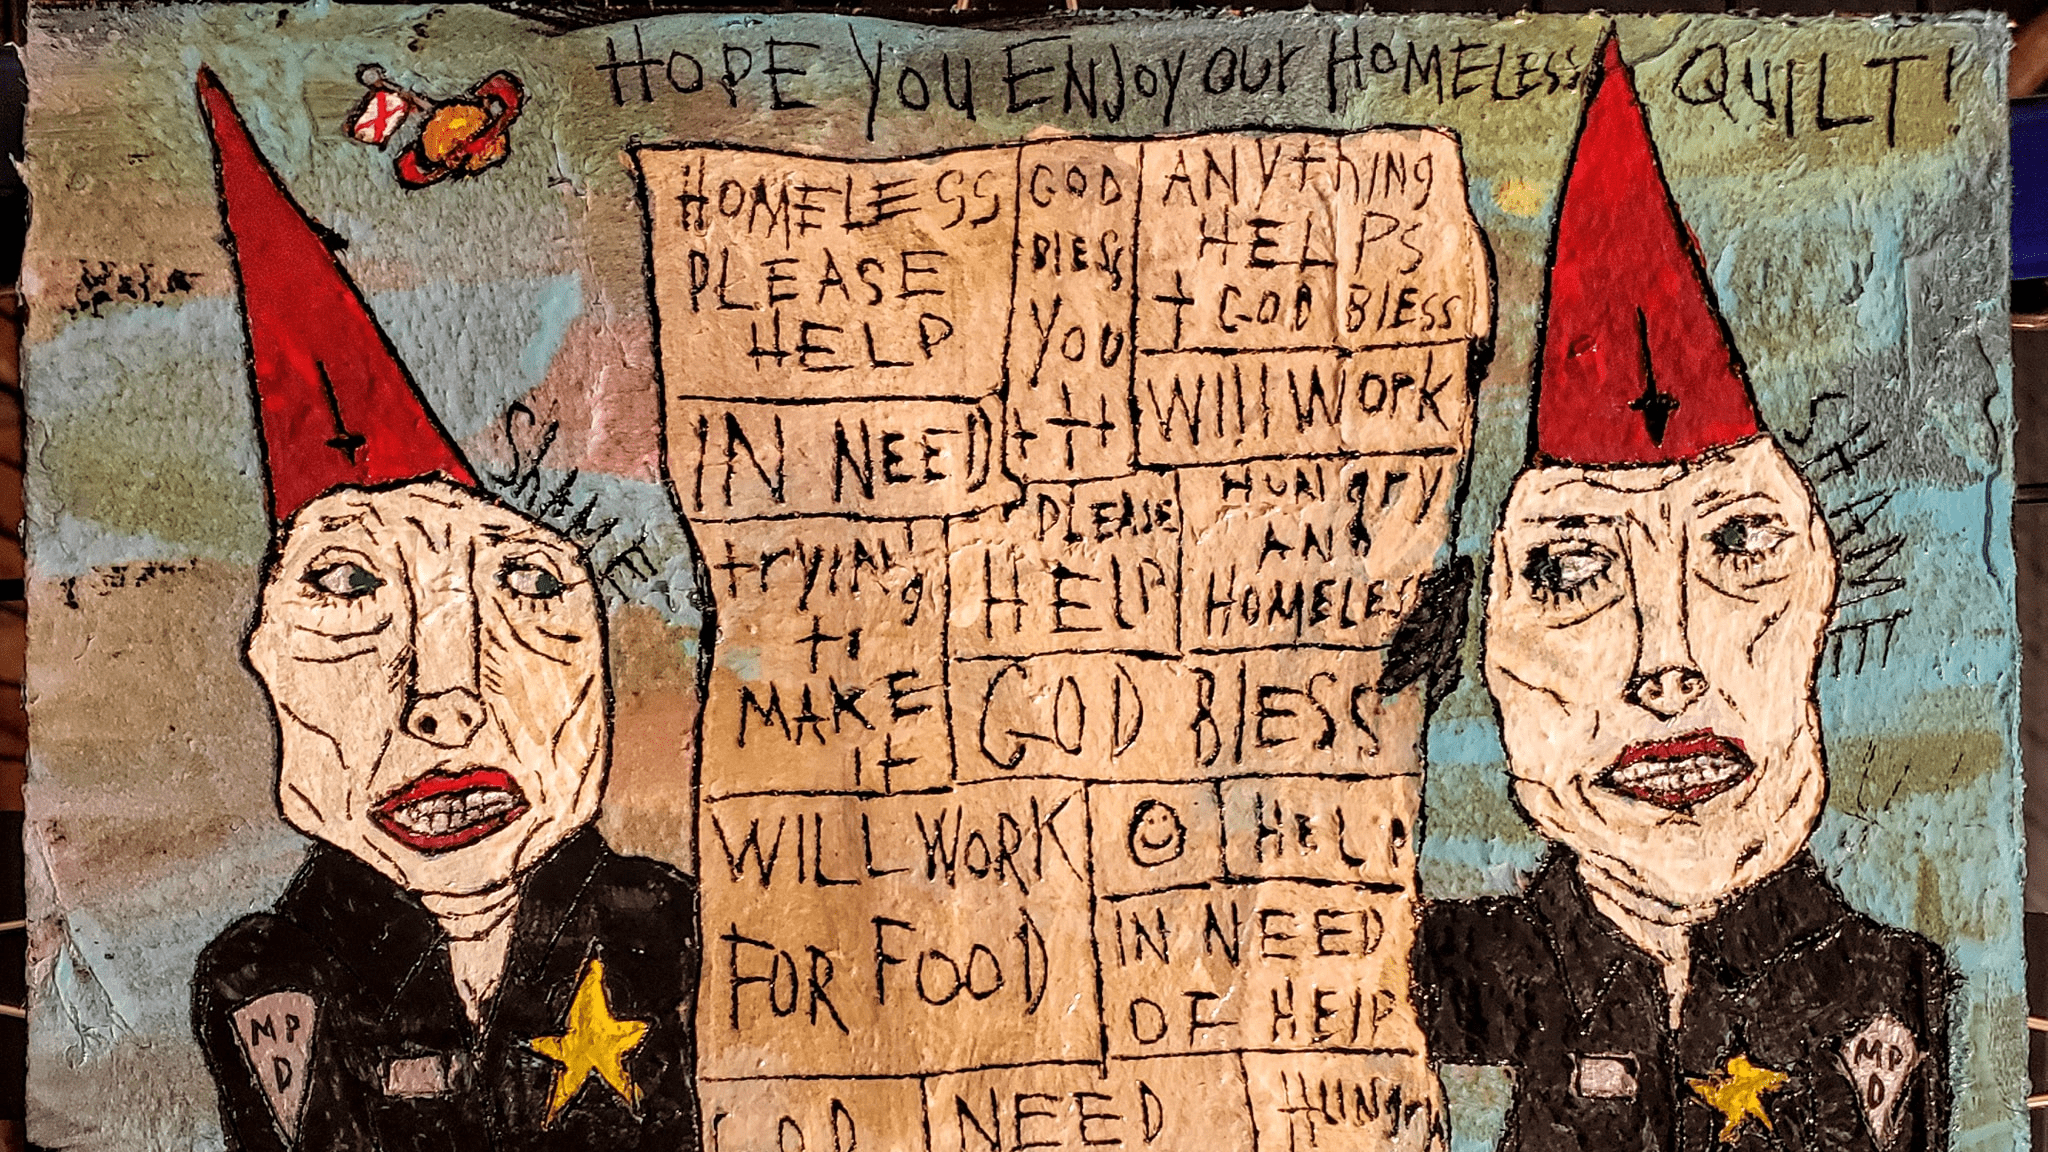 HOPE YOU ENJOY OUR HOMELESS QUILT!
HOMELESS
PLEASE
HELP
GOD
BLESS
YOU
ANYthING
HELPS
GOD BLESS
IN NEED
WIll WOrk
tryING
t
MAKE
It
PLEASE
HELP
HUNgry
AND
HOMELESS
GOD BLESS
WILL WORK
FOR FOOD
HELP
IN NEED
OF HElP
GOD
NEED
HUNG
ShAME
SHAME
MP
D
MP
D